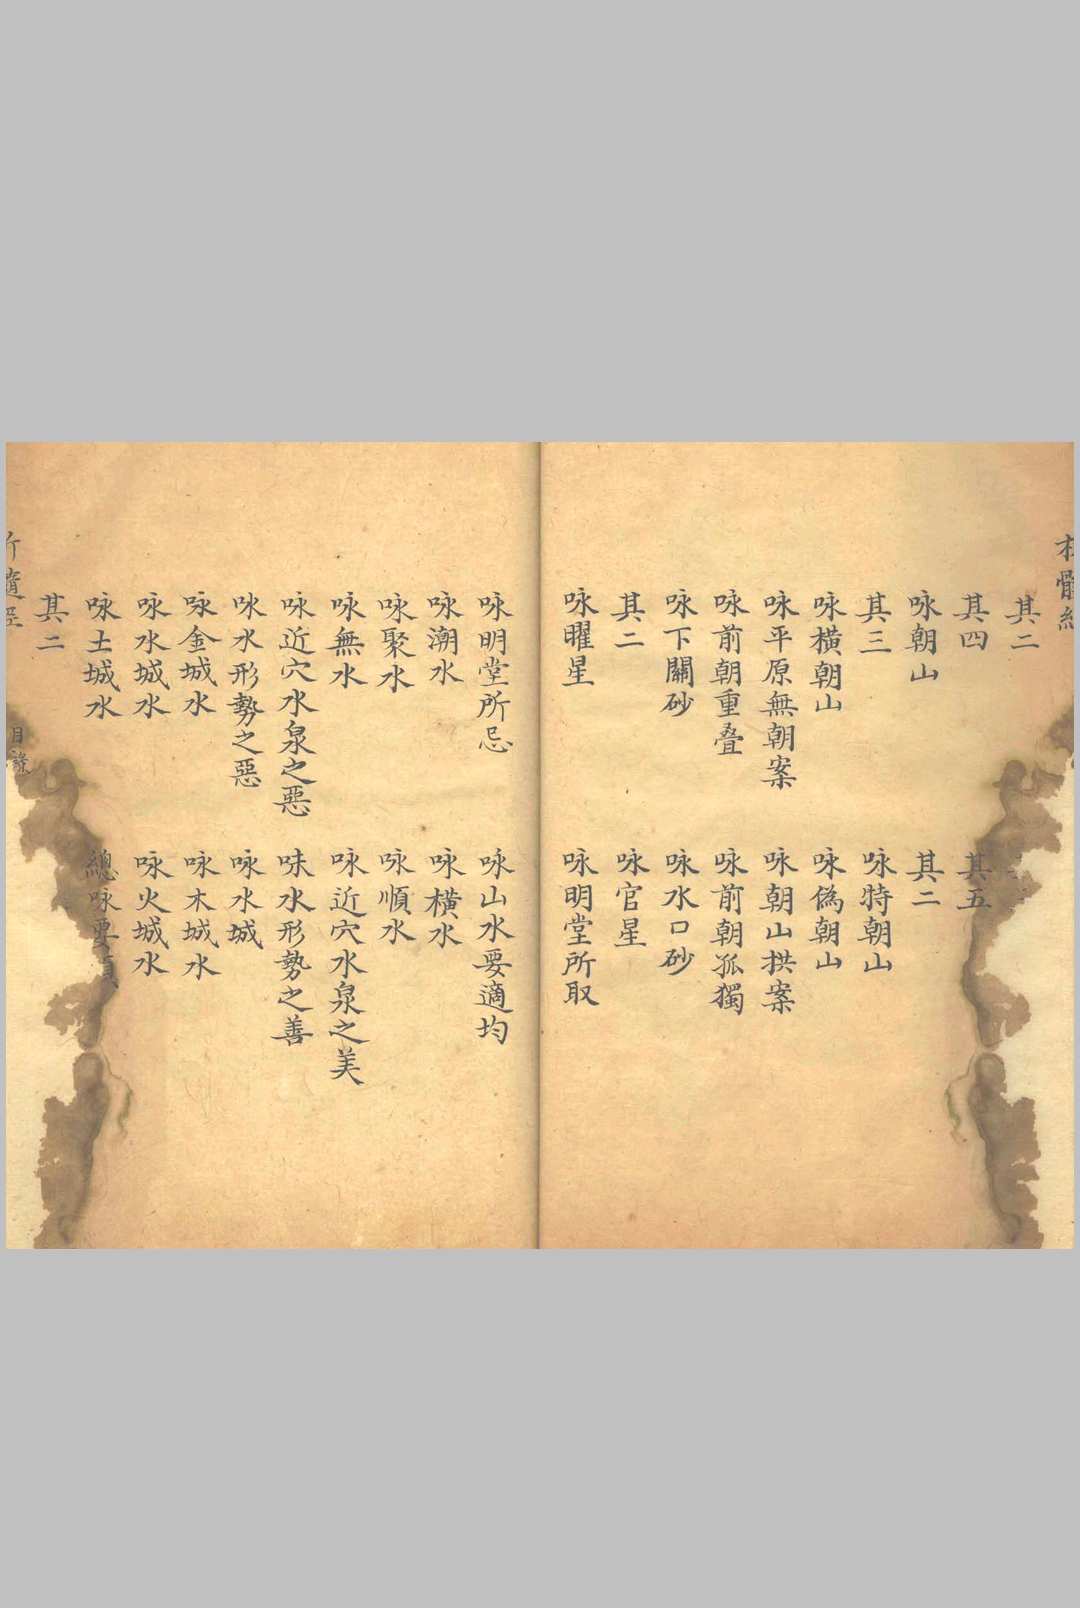 髓經
其二
其四 其五
咏朝山 其二
其三 咏特朝山
咏橫朝山 咏偽朝山
咏平原無朝案 咏朝山拱案
咏前朝重叠 咏前朝孤獨
咏下關砂 咏水口砂
其二 咏官星
咏曜星 咏明堂所取
咏明堂所忌 咏山水要適均
咏潮水 咏橫水
咏聚水 咏順水
咏無水 咏近穴水泉之美
咏近穴水泉之惡 味水形勢之善
咏水形勢之惡 咏水城
咏金城水 咏木城水
咏水城水 咏火城水
咏土城水 總咏要
其二
髓經 目錄